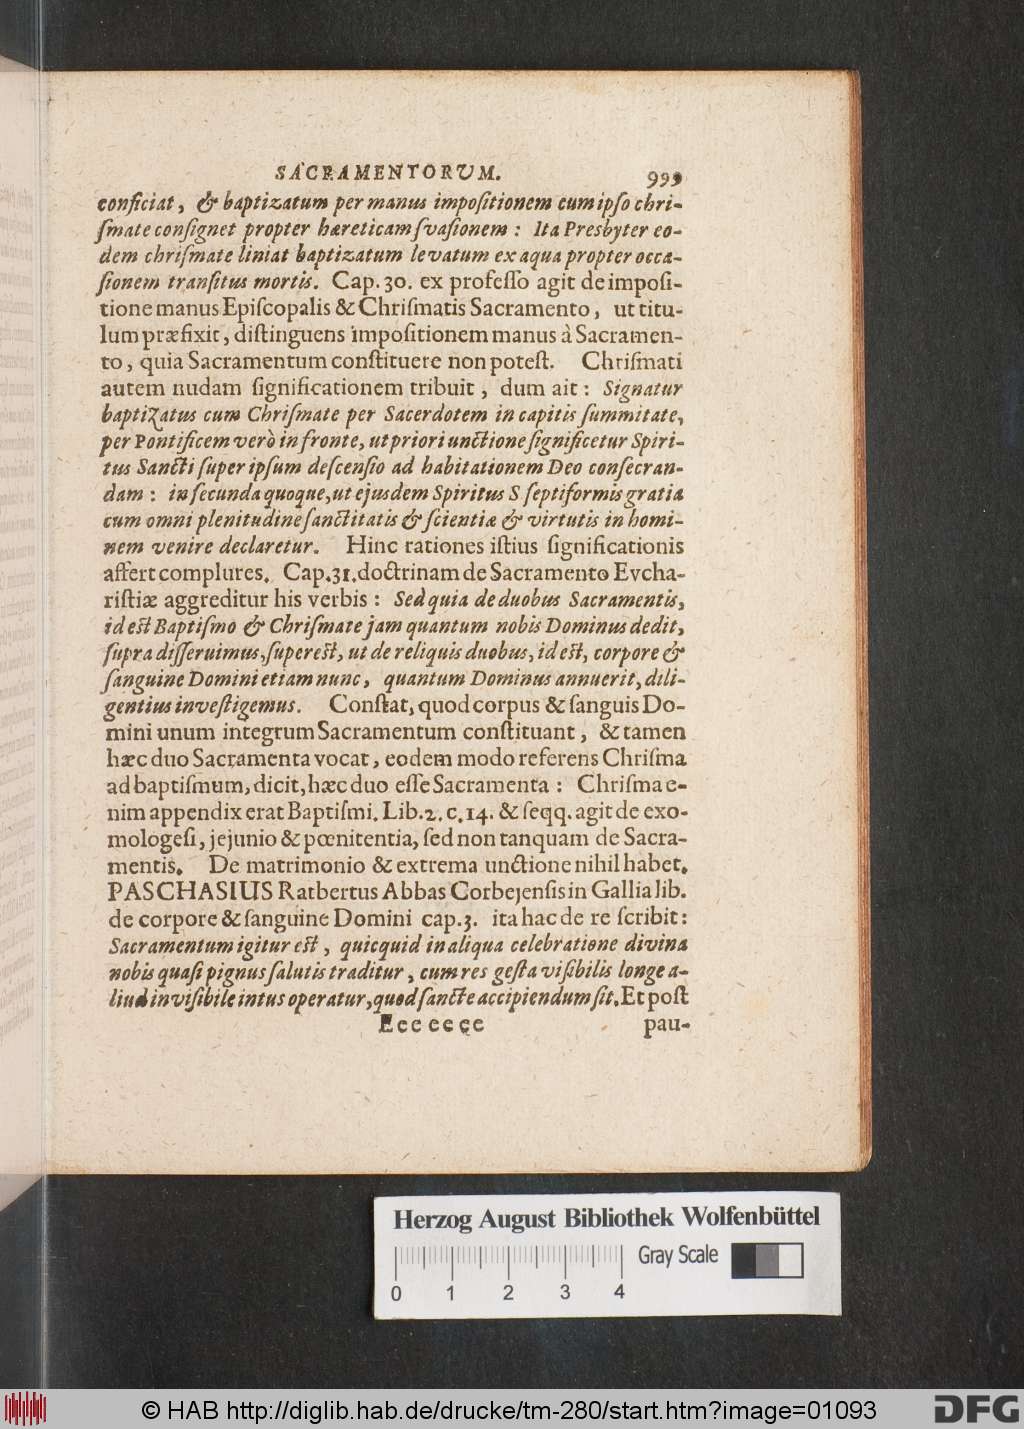 SACRAMENTORUM. 999
conficiat, & baptizatum per manus impoſitionem cum ipſo chri-
ſmate conſignet propter hæreticam ſvaſionem: Ita Presbyter eo-
dem chriſmate liniat baptizatum levatum ex aqua propter occa-
ſionem tranſitus mortis. Cap. 30. ex profeſſo agit de impoſi-
tione manus Epiſcopalis & Chriſmatis Sacramento, ut titu-
lum præfixit, diſtinguens impoſitionem manus à Sacramen-
to, quia Sacramentum conſtituere non poteſt. Chriſmati
autem nudam ſignificationem tribuit, dum ait: Signatur
baptizatus cum Chriſmate per Sacerdotem in capitis ſummitate,
per Pontificem verò in fronte, ut priori unctione ſignificetur Spiri-
tus Sancti ſuper ipſum deſcenſio ad habitationem Deo conſecran-
dam: in ſecunda quoque, ut ejusdem Spiritus S ſeptiformis gratia
cum omni plenitudine ſanctitatis & ſcientiæ & virtutis in homi-
nem venire declaretur. Hinc rationes iſtius ſignificationis
affert complures. Cap. 31. doctrinam de Sacramento Evcha-
riſtiæ aggreditur his verbis: Sed quia de duobus Sacramentis,
id eſt Baptiſmo & Chriſmate jam quantum nobis Dominus dedit,
ſupra differuimus, ſupereſt, ut de reliquis duobus, id eſt, corpore &
ſanguine Domini etiam nunc, quantum Dominus annuerit, dili-
gentius inveſtigemus. Conſtat, quod corpus & ſanguis Do-
mini unum integrum Sacramentum conſtituant, & tamen
hæc duo Sacramenta vocat, eodem modo referens Chriſma
ad baptiſmum, dicit, hæc duo eſſe Sacramenta: Chriſma e-
nim appendix erat Baptiſmi. Lib. 2. c. 14. & ſeqq. agit de exo-
mologeſi, jejunio & pœnitentia, ſed non tanquam de Sacra-
mentis. De matrimonio & extrema unctione nihil habet.
PASCHASIUS Ratbertus Abbas Corbejenſis in Gallia lib.
de corpore & ſanguine Domini cap. 3. ita hac de re ſcribit:
Sacramentum igitur eſt, quicquid in aliqua celebratione divina
nobis quaſi pignus ſalutis traditur, cum res geſta viſibilis longe a-
liud inviſibile intus operatur, quod ſancte accipiendum ſit. Et poſt
Eee eeee pau-
Herzog August Bibliothek Wolfenbüttel
Gray Scale
0 1 2 3 4
© HAB http://diglib.hab.de/drucke/tm-280/start.htm?image=01093
DFG